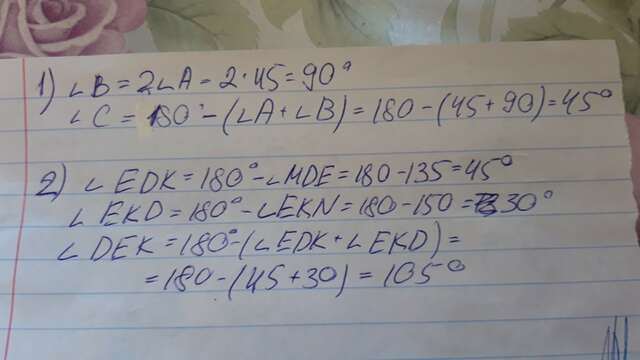 1) ∠B = 2∠A = 2·45 = 90°
∠C = 180° - (∠A + ∠B) = 180 - (45 + 90) = 45°
2) ∠EDK = 180° - ∠MDE = 180 - 135 = 45°
∠EKD = 180° - ∠EKN = 180 - 150 = 30°
∠DEK = 180° - (∠EDK + ∠EKD) =
= 180 - (45 + 30) = 105°